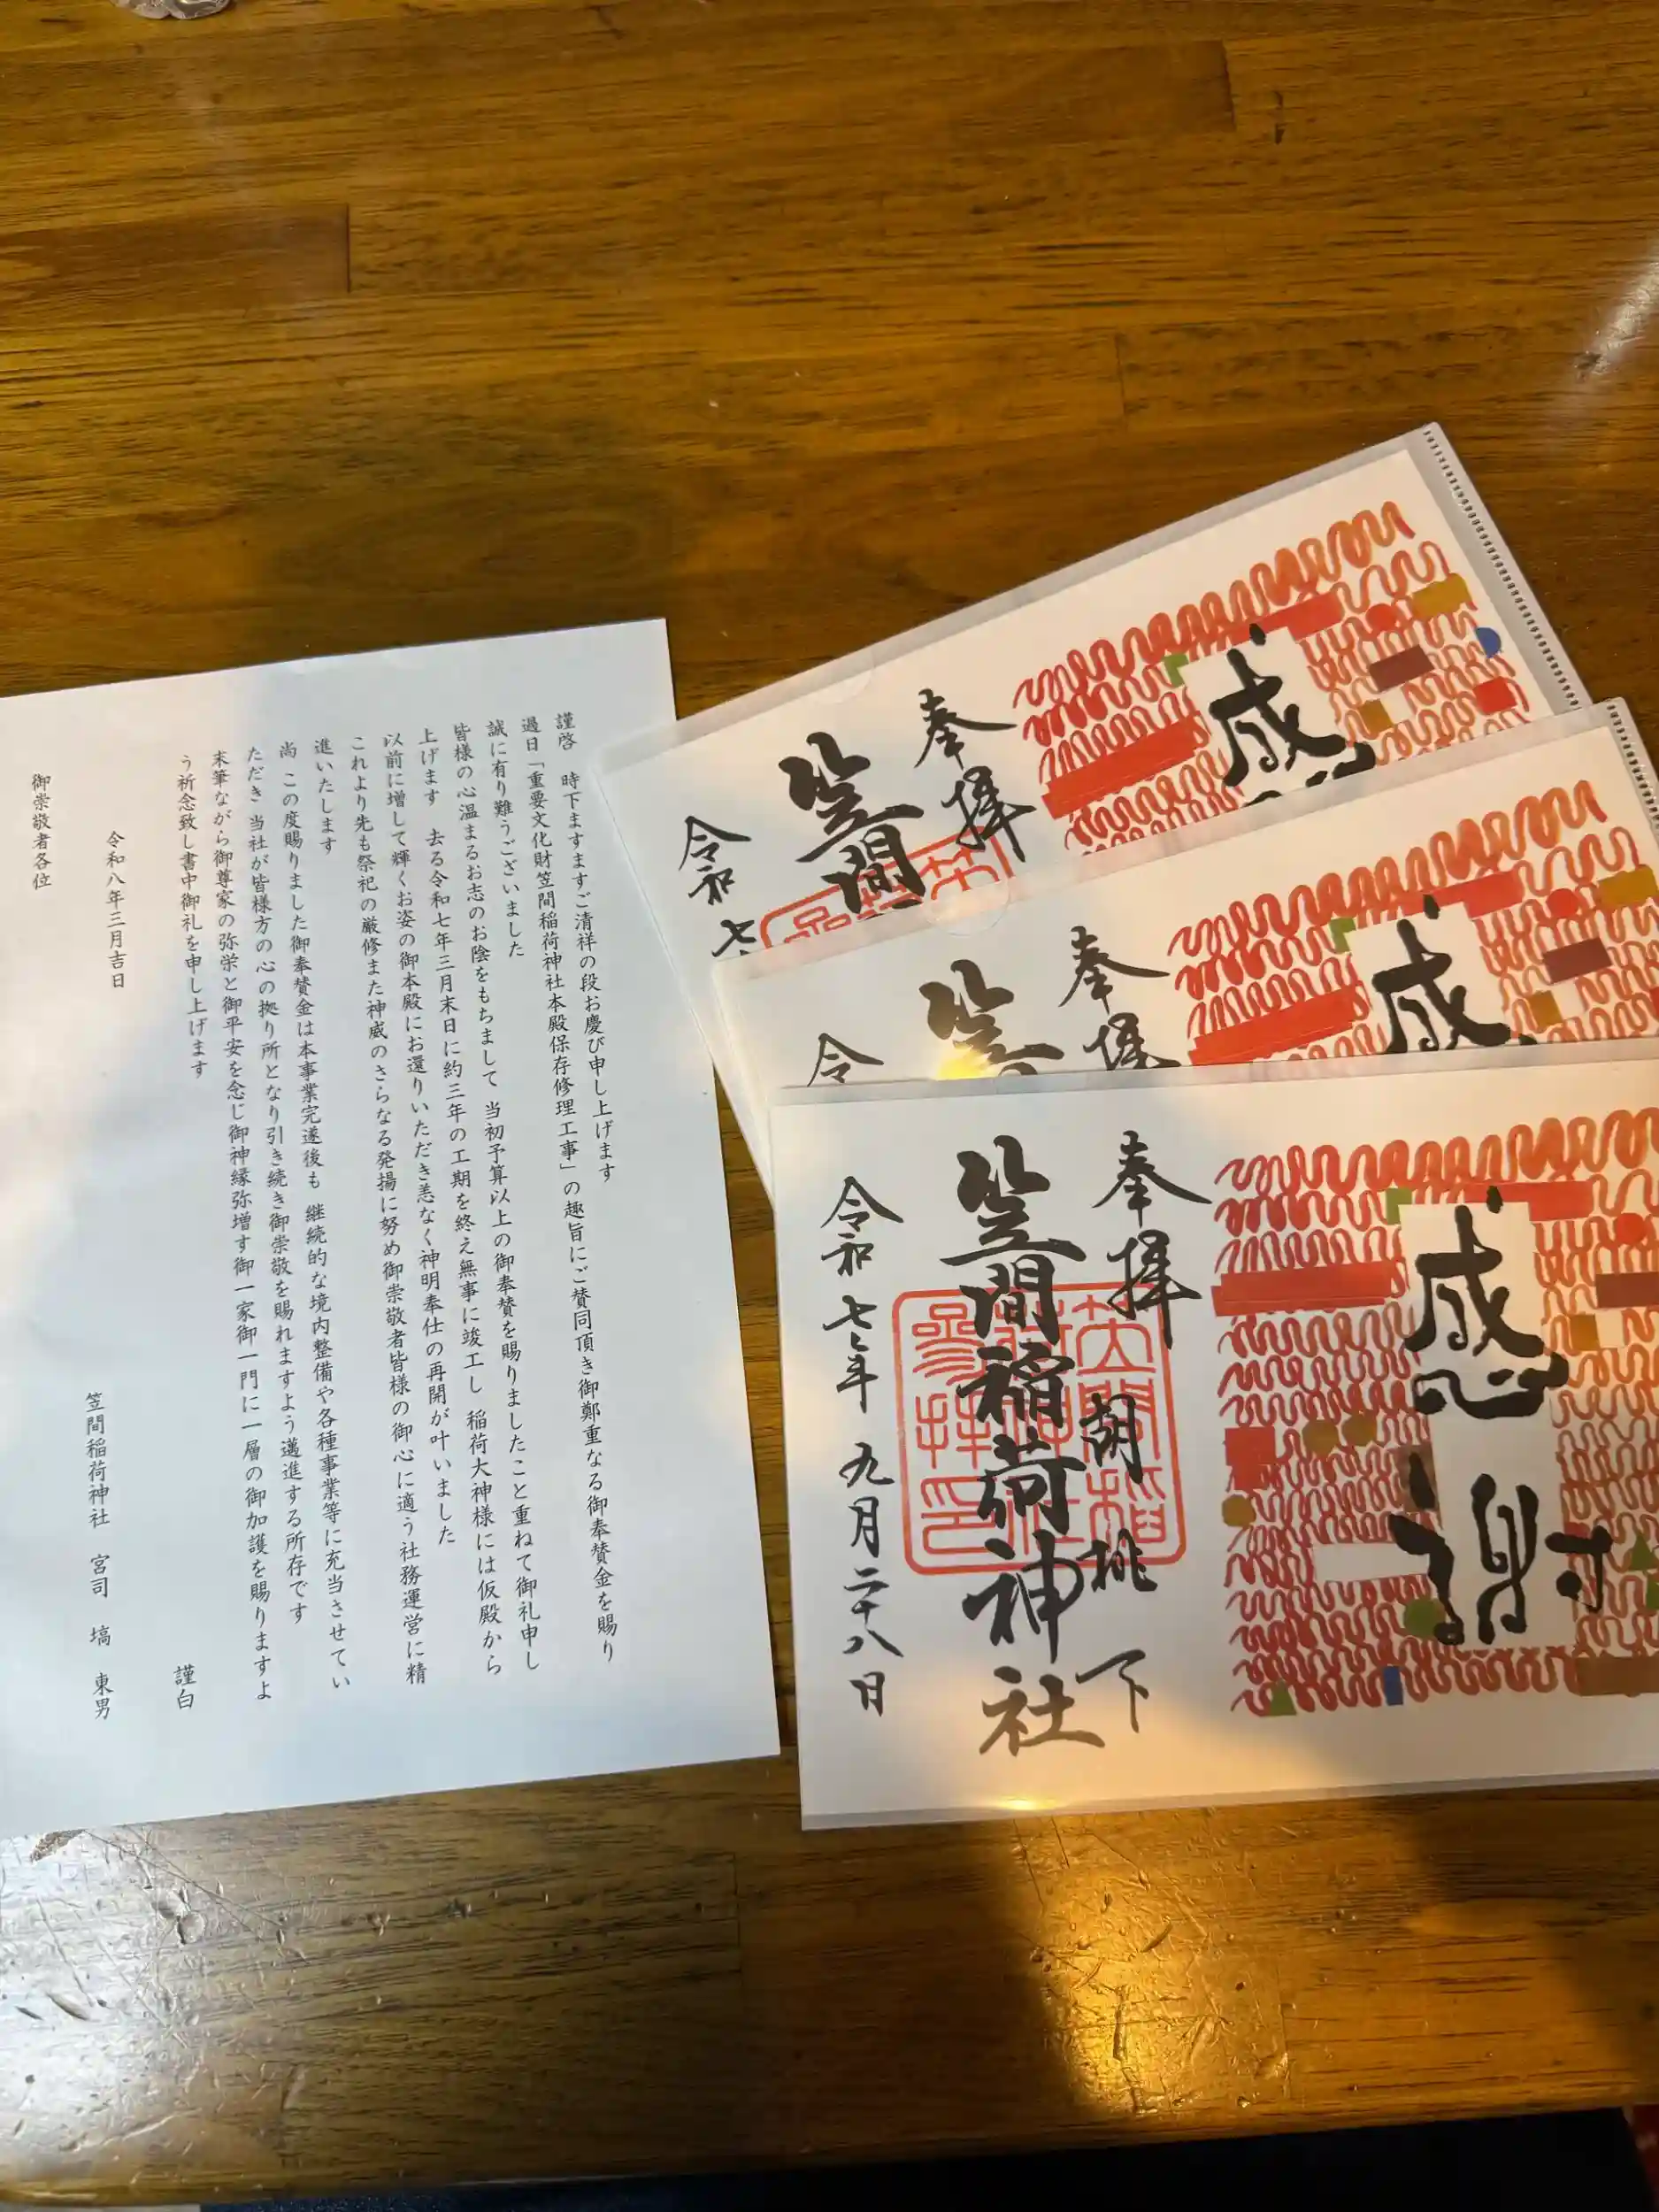 謹啓　時下ますますご清祥の段お慶び申し上げます
過日「重要文化財笠間稲荷神社本殿保存修理工事」の趣旨にご賛同頂き御鄭重なる御奉賛金を賜り
誠に有り難うございました
皆様の心温まるお志のお陰をもちまして　当初予算以上の御奉賛を賜りましたこと重ねて御礼申し
上げます　去る令和七年三月末日に約三年の工期を終え無事に竣工し　稲荷大神様には仮殿から
以前に増して輝くお姿の御本殿にお還りいただき恙なく神明奉仕の再開が叶いました
これより先も祭祀の厳修また神威のさらなる発揚に努め御崇敬者皆様の御心に適う社務運営に精
進いたします
尚　この度賜りました御奉賛金は本事業完遂後も　継続的な境内整備や各種事業等に充当させてい
ただき　当社が皆様方の心の拠り所となり引き続き御崇敬を賜れますよう邁進する所存です
末筆ながら御尊家の弥栄と御平安を念じ御神縁弥増す御一家御一門に一層の御加護を賜りますよ
う祈念致し書中御礼を申し上げます
謹白
令和八年三月吉日
笠間稲荷神社　宮司　塙　東男
御崇敬者各位
感
奉拝
笠間
令和七
感
奉拝
笠間
令
感謝
奉拝
胡桃下
笠間稲荷神社
令和七年九月二十八日